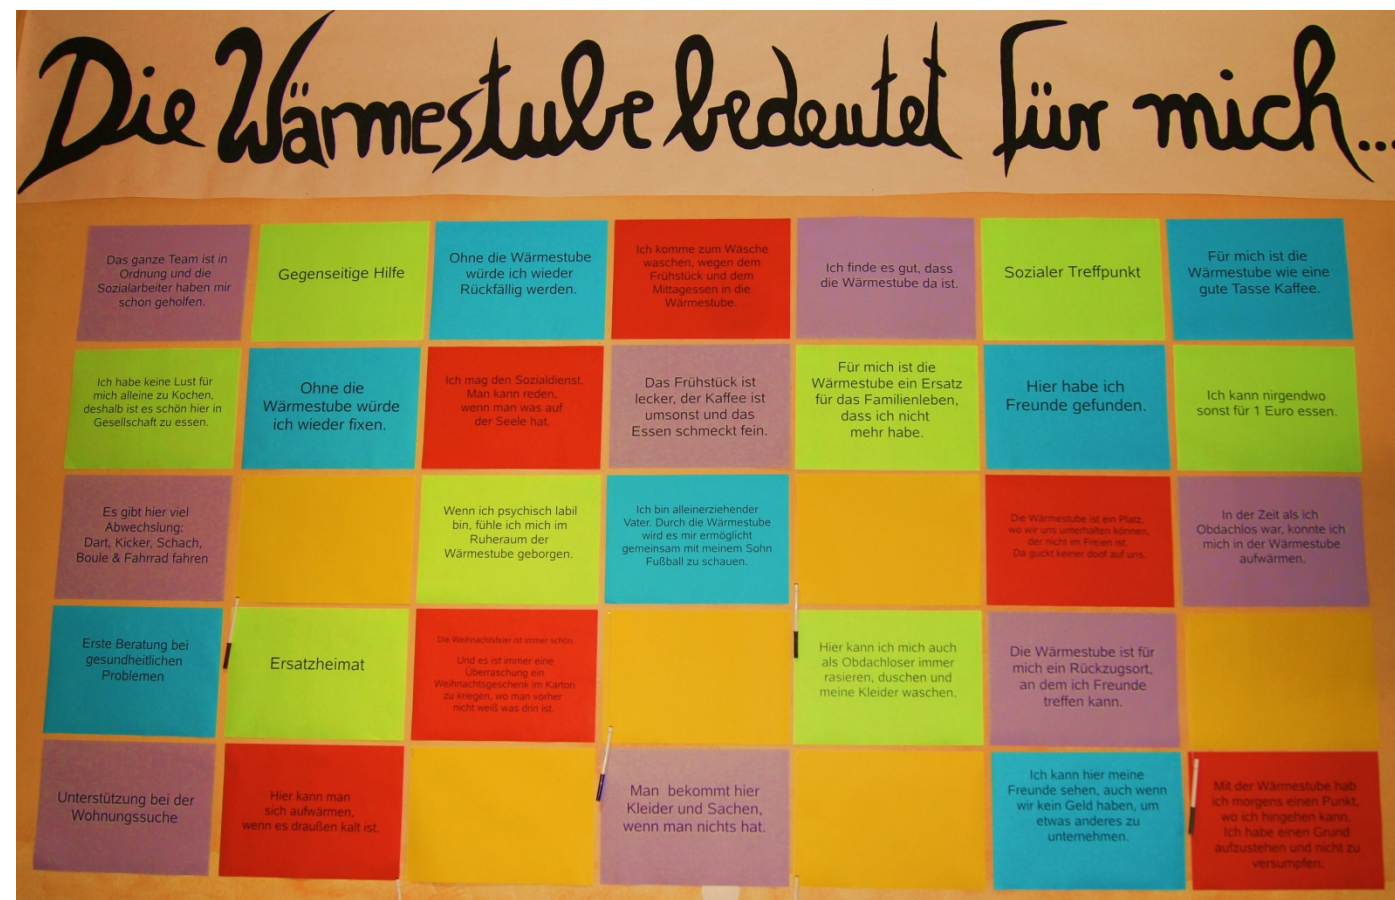 Die Wärmestube bedeutet für mich...
Das ganze Team ist in
Ordnung und die
Sozialarbeiter haben mir
schon geholfen.
Gegenseitige Hilfe
Ohne die Wärmestube
würde ich wieder
Rückfällig werden.
Ich komme zum Wäsche
waschen, wegen dem
Frühstück und dem
Mittagessen in die
Wärmestube.
Ich finde es gut, dass
die Wärmestube da ist.
Sozialer Treffpunkt
Für mich ist die
Wärmestube wie eine
gute Tasse Kaffee.
Ich habe keine Lust für
mich alleine zu Kochen,
deshalb ist es schön hier in
Gesellschaft zu essen.
Ohne die
Wärmestube würde
ich wieder fixen.
Ich mag den Sozialdienst.
Man kann reden,
wenn man was auf
der Seele hat.
Das Frühstück ist
lecker, der Kaffee ist
umsonst und das
Essen schmeckt fein.
Für mich ist die
Wärmestube ein Ersatz
für das Familienleben,
dass ich nicht
mehr habe.
Hier habe ich
Freunde gefunden.
Ich kann nirgendwo
sonst für 1 Euro essen.
Es gibt hier viel
Abwechslung:
Dart, Kicker, Schach,
Boule & Fahrrad fahren
Wenn ich psychisch labil
bin, fühle ich mich im
Ruheraum der
Wärmestube geborgen.
Ich bin alleinerziehender
Vater. Durch die Wärmestube
wird es mir ermöglicht
gemeinsam mit meinem Sohn
Fußball zu schauen.
Die Wärmestube ist ein Platz,
wo wir uns unterhalten können,
der nicht im Freien ist.
Da guckt keiner doof auf uns.
In der Zeit als ich
Obdachlos war, konnte ich
mich in der Wärmestube
aufwärmen.
Erste Beratung bei
gesundheitlichen
Problemen
Ersatzheimat
Die Weihnachtsfeier ist immer schön
Und es ist immer eine
Überraschung ein
Weihnachtsgeschenk im Karton
zu kriegen, wo man vorher
nicht weiß was drin ist.
Hier kann ich mich auch
als Obdachloser immer
rasieren, duschen und
meine Kleider waschen.
Die Wärmestube ist für
mich ein Rückzugsort,
an dem ich Freunde
treffen kann.
Unterstützung bei der
Wohnungssuche
Hier kann man
sich aufwärmen,
wenn es draußen kalt ist.
Man bekommt hier
Kleider und Sachen,
wenn man nichts hat.
Ich kann hier meine
Freunde sehen, auch wenn
wir kein Geld haben, um
etwas anderes zu
unternehmen.
Mit der Wärmestube hab
ich morgens einen Punkt,
wo ich hingehen kann.
Ich habe einen Grund
aufzustehen und nicht zu
versumpfen.